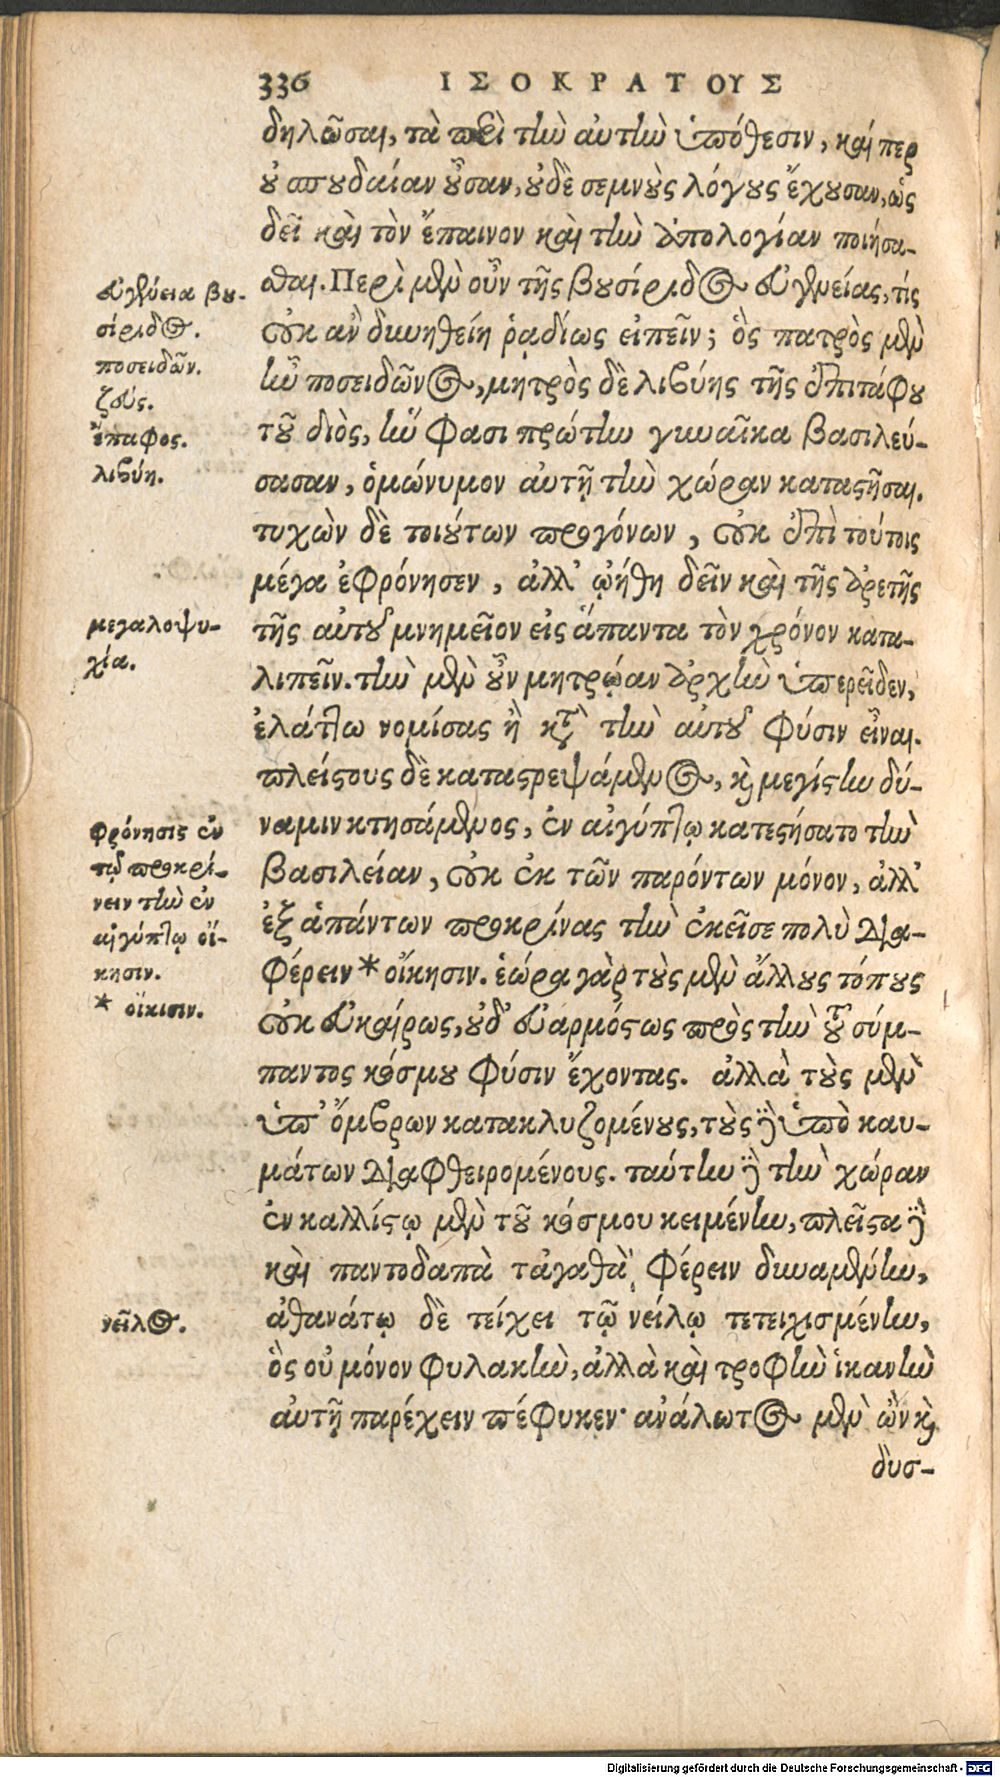 336 ΙΣΟΚΡΑΤΟΥΣ
δηλῶσαι, τὰ περὶ τὴν αὐτὴν ὑπόθεσιν, καί περ
οὐ σπουδαίαν οὖσαν, οὐδὲ σεμνοὺς λόγους ἔχουσαν, ὡς
δεῖ καὶ τὸν ἔπαινον καὶ τὴν ἀπολογίαν ποιήσα-
σθαι. Περὶ μὲν οὖν τῆς βουσίριδος εὐγενείας, τίς
οὐκ ἂν δυνηθείη ῥᾳδίως εἰπεῖν; ὃς πατρὸς μὲν
ἦν ποσειδῶνος, μητρὸς δὲ λιβύης τῆς ἐπιτάφου
τοῦ διὸς, ἥν φασι πρώτην γυναῖκα βασιλεύ-
σασαν, ὁμώνυμον αὐτῇ τὴν χώραν καταστῆσαι.
τυχὼν δὲ τοιούτων προγόνων, οὐκ ἐπὶ τούτοις
μέγα ἐφρόνησεν, ἀλλ' ᾠήθη δεῖν καὶ τῆς ἀρετῆς
τῆς αὑτοῦ μνημεῖον εἰς ἅπαντα τὸν χρόνον κατα-
λιπεῖν. τὴν μὲν οὖν μητρῴαν ἀρχὴν ὑπερεῖδεν,
ἐλάττω νομίσας ἢ κατὰ τὴν αὑτοῦ φύσιν εἶναι.
πλείστους δὲ καταστρεψάμενος, καὶ μεγίστην δύ-
ναμιν κτησάμενος, ἐν αἰγύπτῳ κατεστήσατο τὴν
βασιλείαν, οὐκ ἐκ τῶν παρόντων μόνον, ἀλλ'
ἐξ ἁπάντων προκρίνας τὴν ἐκεῖσε πολὺ δια-
φέρειν * οἴκησιν. ἑώρα γὰρ τοὺς μὲν ἄλλους τόπους
οὐκ εὐκαίρως, οὐδ' εὐαρμόστως πρὸς τὴν τοῦ σύμ-
παντος κόσμου φύσιν ἔχοντας. ἀλλὰ τοὺς μὲν
ὑπ' ὄμβρων κατακλυζομένους, τοὺς δὲ ὑπὸ καυ-
μάτων διαφθειρομένους. ταύτην δὲ τὴν χώραν
ἐν καλλίστῳ μὲν τοῦ κόσμου κειμένην, πλεῖστα δὲ
καὶ παντοδαπὰ τἀγαθὰ φέρειν δυναμένην,
ἀθανάτῳ δὲ τείχει τῷ νείλῳ τετειχισμένην,
ὃς οὐ μόνον φυλακὴν, ἀλλὰ καὶ τροφὴν ἱκανὴν
αὐτῇ παρέχειν πέφυκεν· ἀνάλωτος μὲν ὢν καὶ
δυσ-
εὐγένεια βου-
σίριδος.
ποσειδῶν.
ζεύς.
ἔπαφος.
λιβύη.
μεγαλοψυ-
χία.
φρόνησις ἐν
τῷ προκρί-
νειν τὴν ἐν
αἰγύπτῳ οἴ-
κησιν.
* οἴκισιν.
νεῖλος.
Digitalisierung gefördert durch die Deutsche Forschungsgemeinschaft - DFG